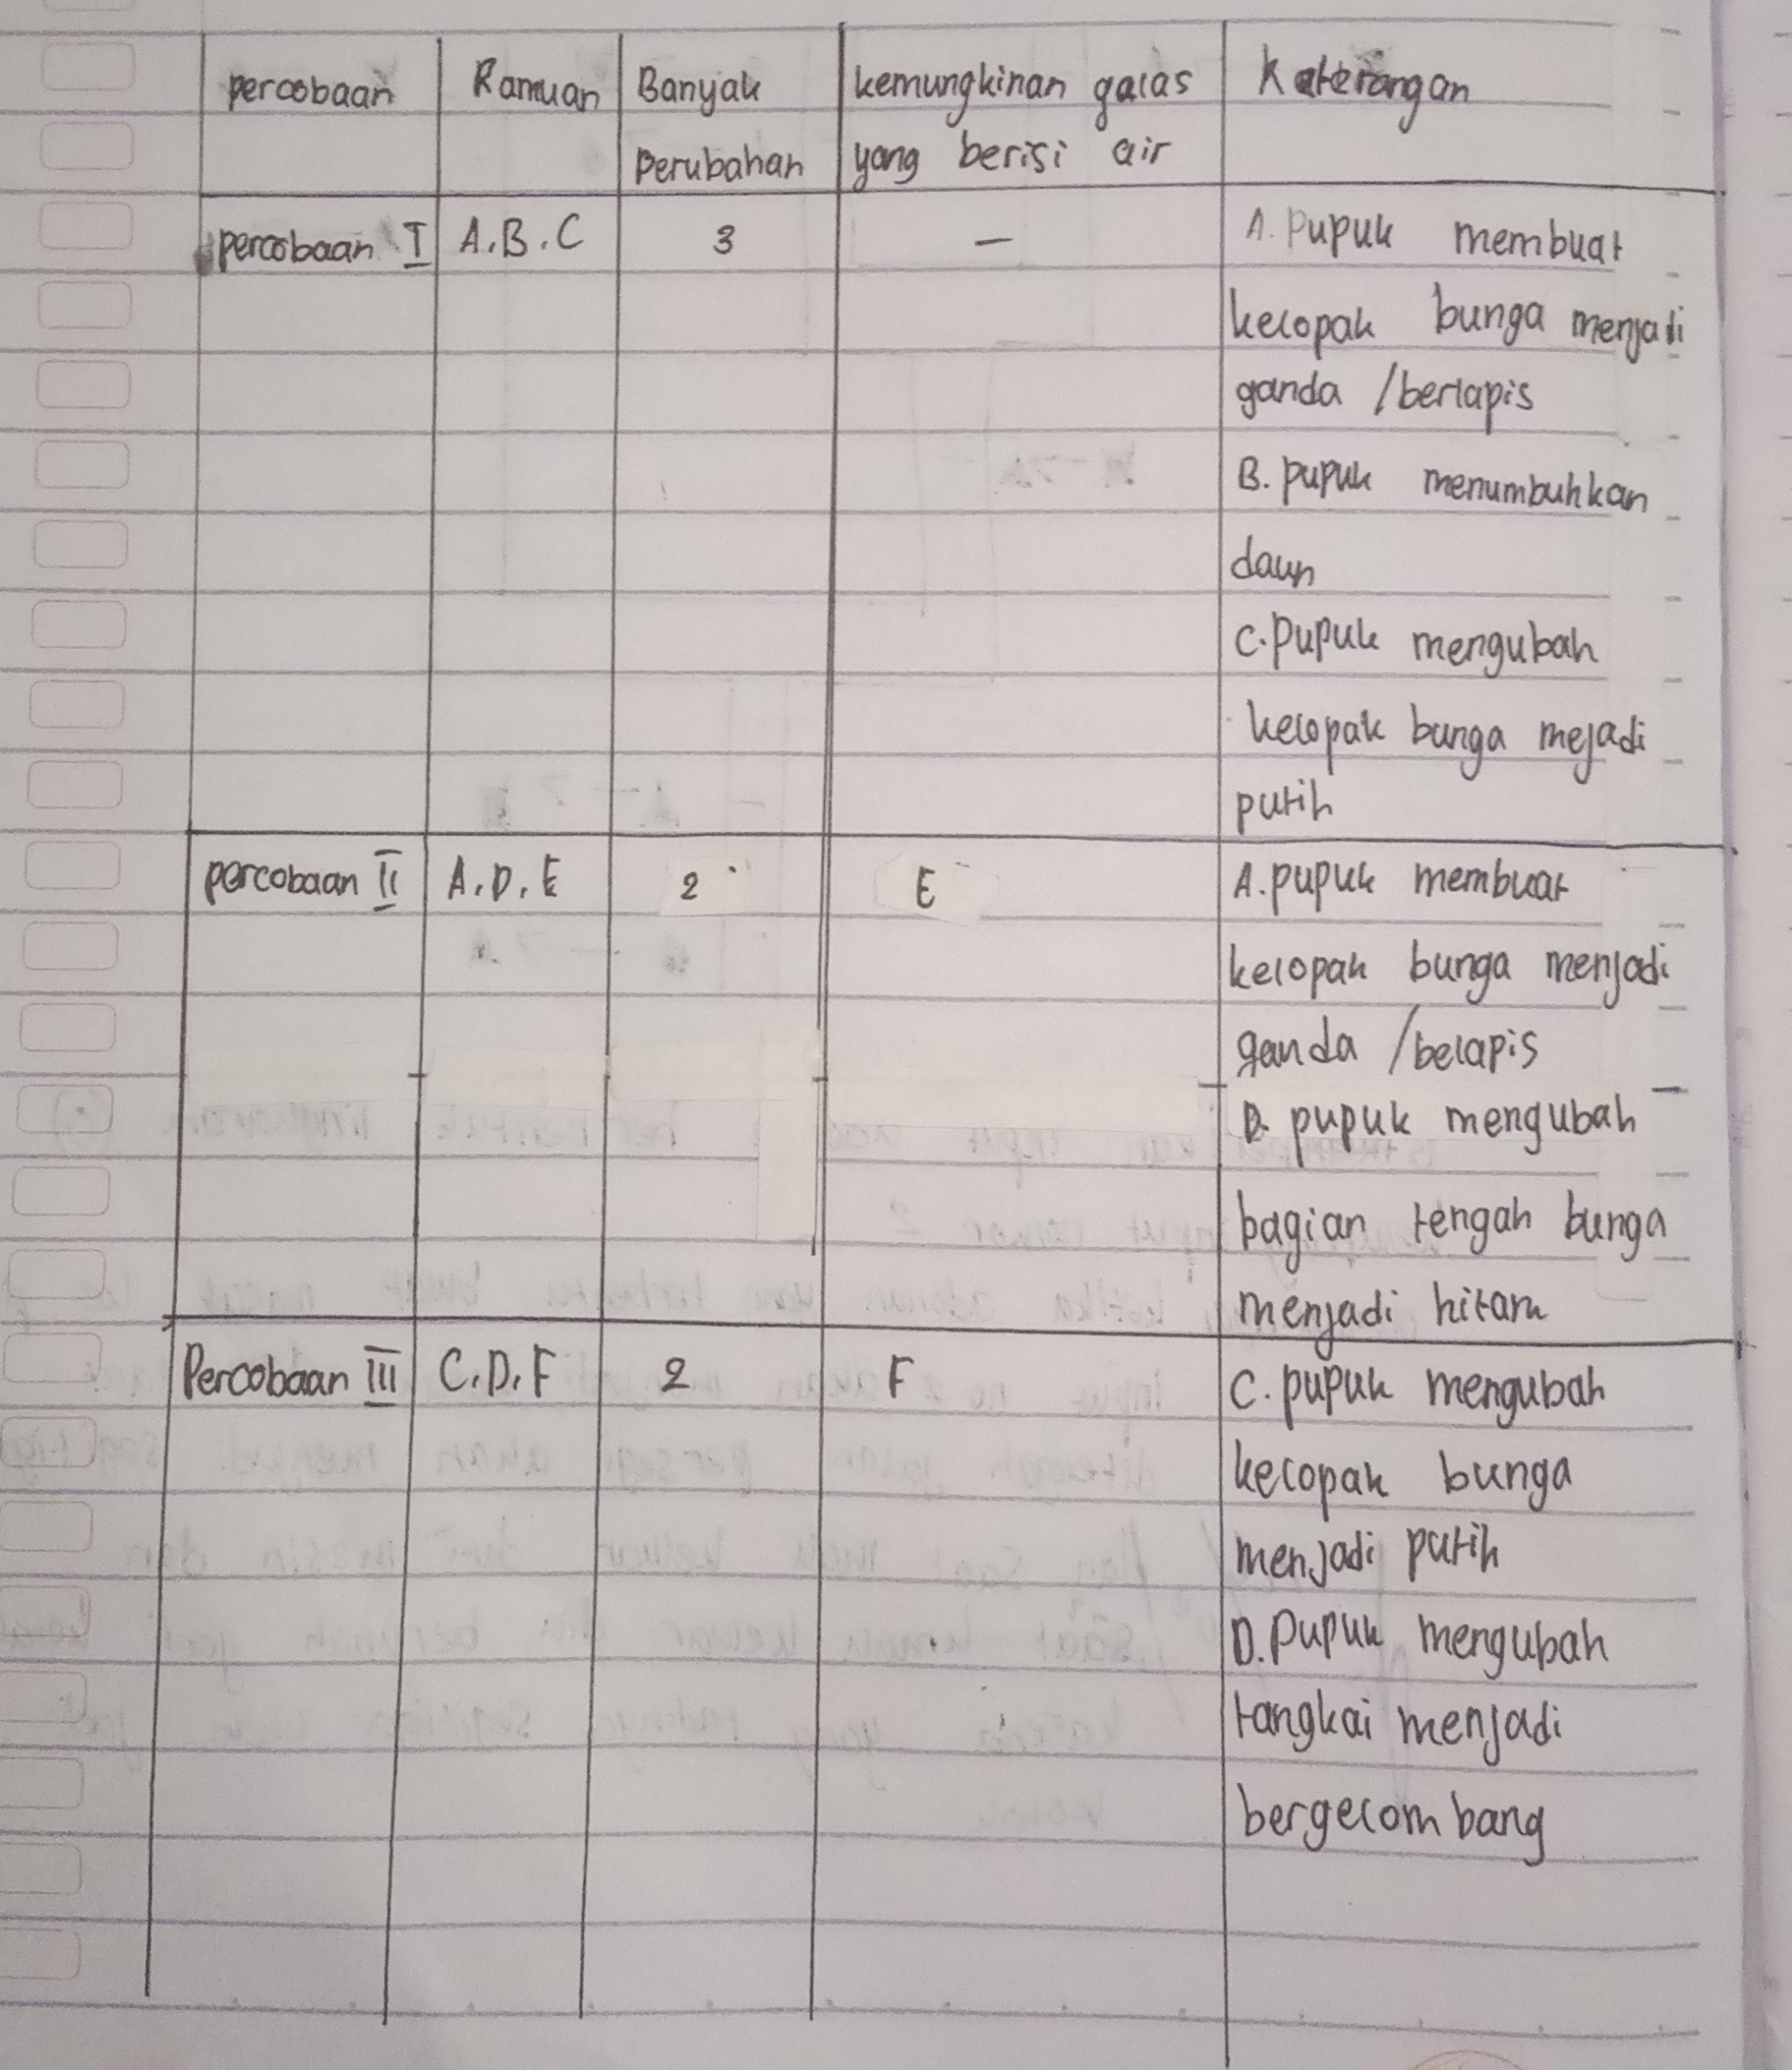 percobaan Ramuan Banyak kemungkinan gelas Keterangan
perubahan yang berisi air
percobaan I A.B.C 3 — A. Pupuk membuat
kelopak bunga menjadi
ganda /berlapis
B. pupuk menumbuhkan
daun
C. Pupuk mengubah
kelopak bunga mejadi
putih
percobaan II A.D.E 2 E A. pupuk membuat
kelopak bunga menjadi
ganda /belapis
D. pupuk mengubah
bagian tengah bunga
menjadi hitam
Percobaan III C.D.F 2 F C. pupuk mengubah
kelopak bunga
menjadi putih
D. Pupuk mengubah
tangkai menjadi
bergelombang